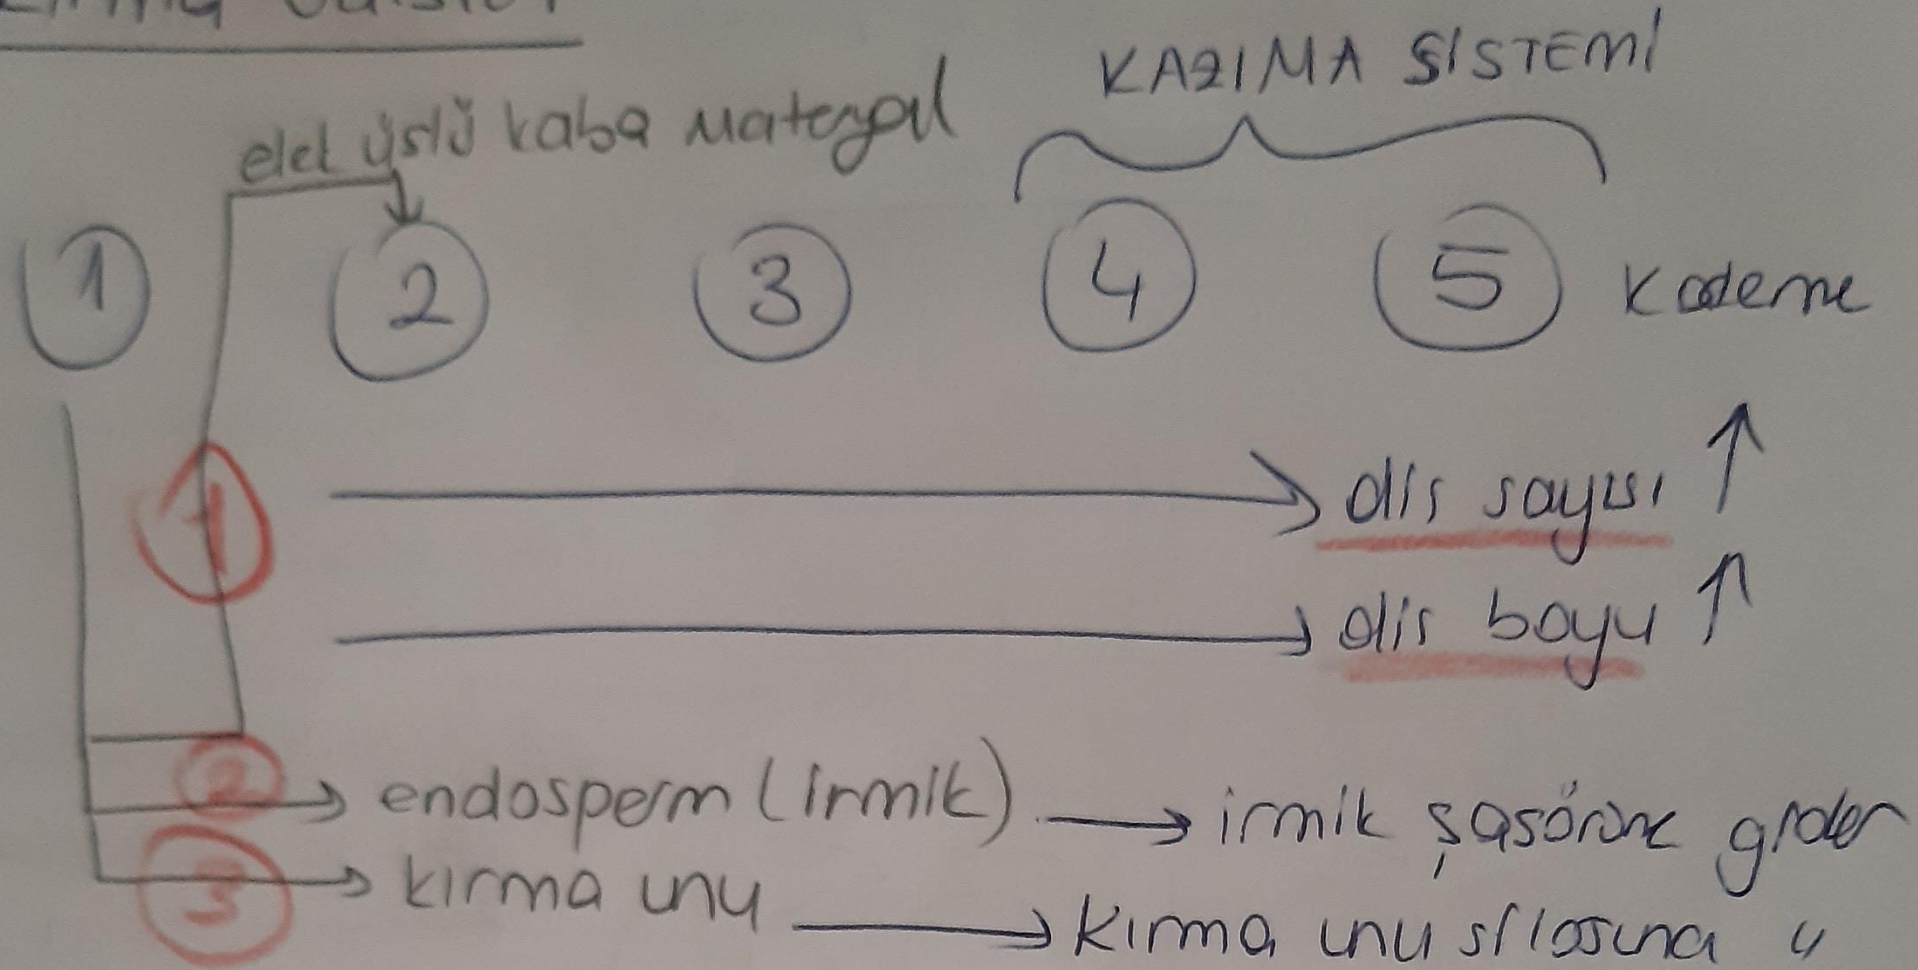 KAZIMA SİSTEMİ
elek üstü kaba materyal
1 2 3 4 5 Kademe
1 diş sayısı ↑
diş boyu ↑
2 → endosperm (irmik) → irmik şasörüne gider
3 → kırma unu → kırma unu silosuna "